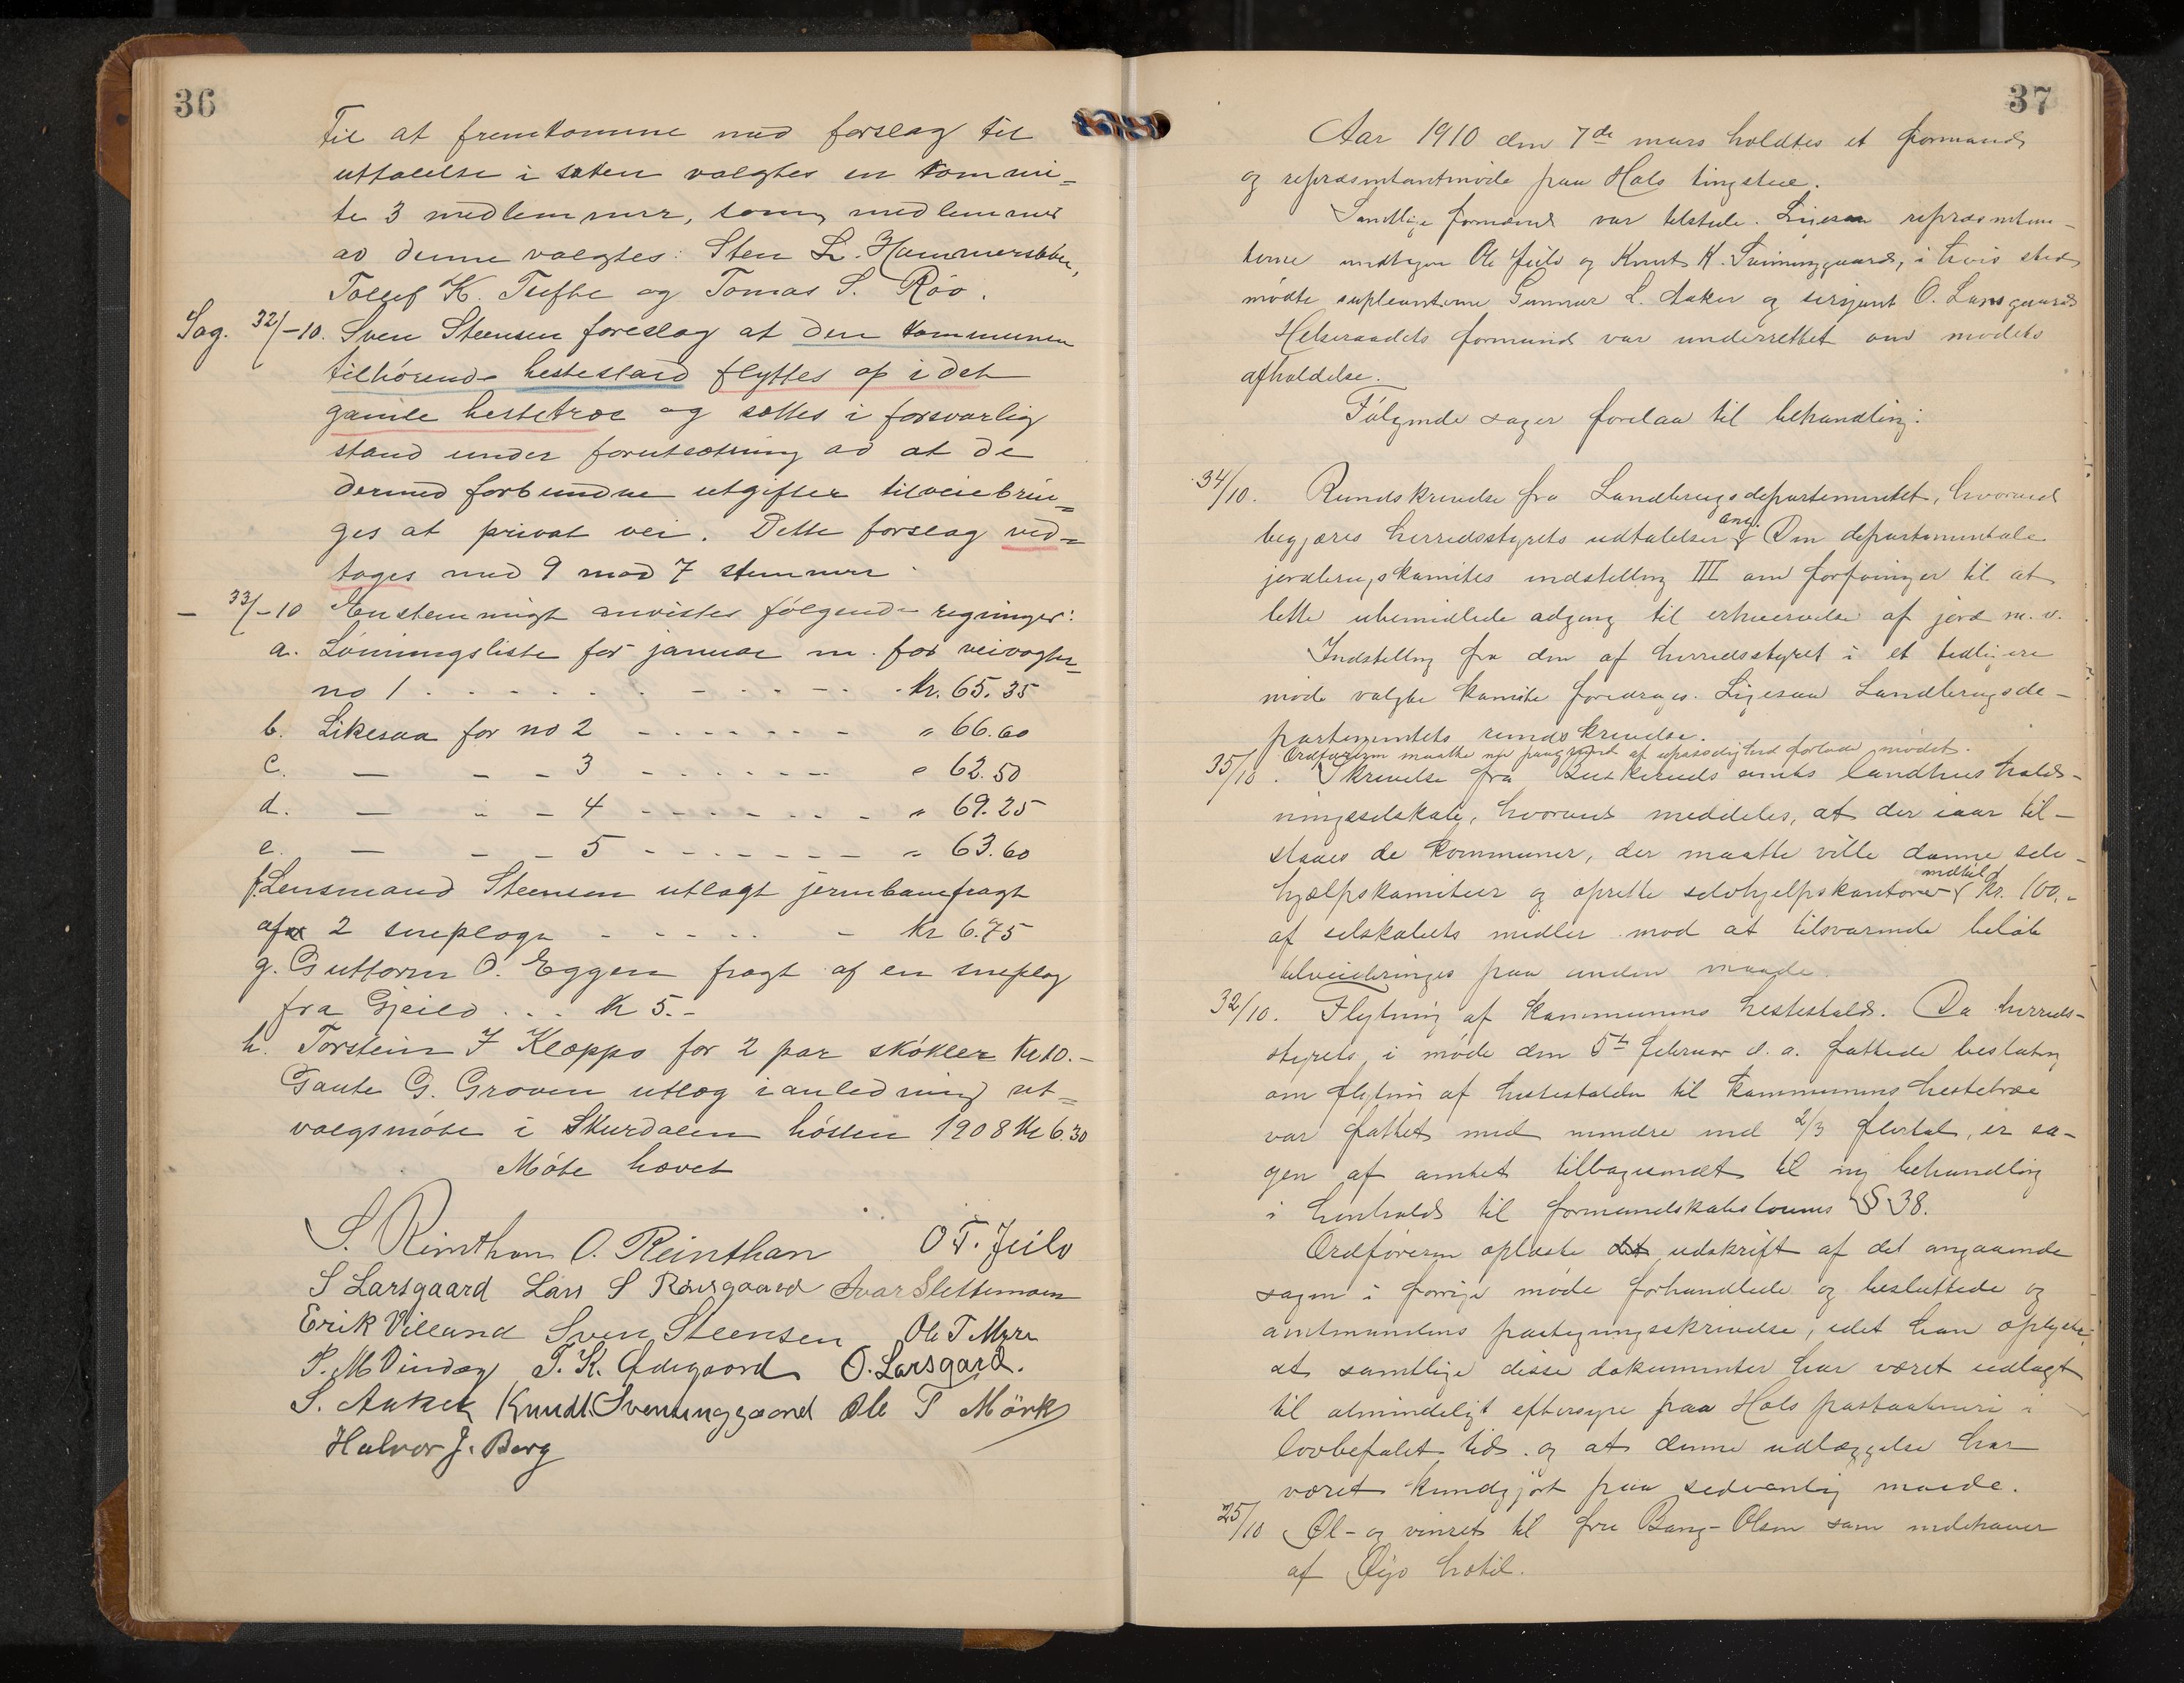 36
Til at fremkomme med forslag til
uttalelse i saken valgtes en kommi=
te 3 medlemmer, som medlemmer
av denne valgtes: Sten L. Hammersbøen,
Tollef K. Tufte og Tomas S. Röo.
Sag. 32/-10. Sven Steensen foreslog at den kommunen
tilhörende hestestald flyttes op i det
gamle hestetroe og sættes i forsvarlig
stand under forutsætning av at de
dermed forbundne utgifter tilveiebrin=
ges at privat vei. Dette forslag ved=
toges med 9 mod 7 stemmer.
— 33/-10 Enstemmigt anvistes følgende regninger:
a. Lönningsliste for januar m. for veivogter
no 1 . . . . . . . . - . . - - . . kr. 65.35
b. Likesaa for no 2 - - - - - - - " 66.60
c. — - - 3 - - - - - - - " 62.50
d. — - - 4 - - - - - - - - " 69.25
e. — - - 5 - - - - - - - " 63.60
f. Lensmand Steensen utlagt jernbanefragt
af 2 sneploger - - - - - - Kr 6.75
g. Guttorm O. Eggen fragt af en sneplog
fra Gjeilo . . . Kr 5.-
h. Torstein J Kleppo for 2 par skókler Kr 10.-
Gaute G. Groven utlæg i anledning ut=
valgsmöte i Skurdalen hösten 1908 Kr 6.30
Móte hævet
S. Reinthon O. Reinthan O T. Jeilo
S Larsgaard Lars S Raysgaard Ivar Slettemoen
Erik Villand Sven Steensen Ole T Myro
T. K. Ødegaard O. Larsgard.
S. Aaker Knudt Sveninggaard Ole T Mörk
Halvor J. Berg
37
Aar 1910 den 7de mars holdtes et formands
og repræsentantmöde paa Hols tingstue.
Samtlige formænd var tilstede. Ligesaa repræsentan-
terne undtagen Ole Jeilo og Knut K. Sveininggaard, i hvis sted
mödte supleanterne Gunnar L. Aaker og sersjant O. Larsgaard
Helseraadets formand var underrettet om mödets
afholdelse.
Fölgende sager forelaa til behandling:
34/10. Rundskrivelse fra Landbrugsdepartementet, hvorved
begjæres herredsstyrets udtalelser ang. Den departementale
jordbrugskomites indstilling III om forföininger til at
lette ubemidlede adgang til erhvervelse af jord m. v.
Indstilling fra den af herredsstyret i et tidligere
möde valgte komite foredroges. Ligesaa Landbrugsde-
partementets rundskrivelse.
Ordföreren maatte nu paa grund af upasselighed forlade mödet.
35/10. Skrivelse fra Buskeruds amts landhushold-
ningsselskab, hvorved meddeles, at der iaar til-
staaes de kommuner, der maatte ville danne selv-
hjælpskomiteer og oprette selvhjelpskontorer indtil kr. 100.-
af selskabets midler mod at tilsvarende belöb
tilveiebringes paa anden maade.
32/10. Flytning af kommunens hestestald. Da herreds-
styrets i möde den 5te februar d. a. fattede beslutning
om flytning af hestestalden til kommunens hestetroe
var fattet med mindre end 2/3 flertal, er sa-
gen af amtet tilbagesendt til ny behandling
i henhold til formandskabslovens § 38.
Ordföreren oplæste udskrift af det angaaende
sagen i forrige möde forhandlede og besluttede og
amtmandens paategningsskrivelse, idet han oplyste
at samtlige disse dokumenter har været udlagt
til almindeligt eftersyn paa Hols postaabneri i
lovbefalet tid. og at denne udlæggelse har
været kundgjört paa sedvanlig maade.
25/10 Øl- og vinret til fru Bang-Olsen som indehaver
af Öijo hotel.